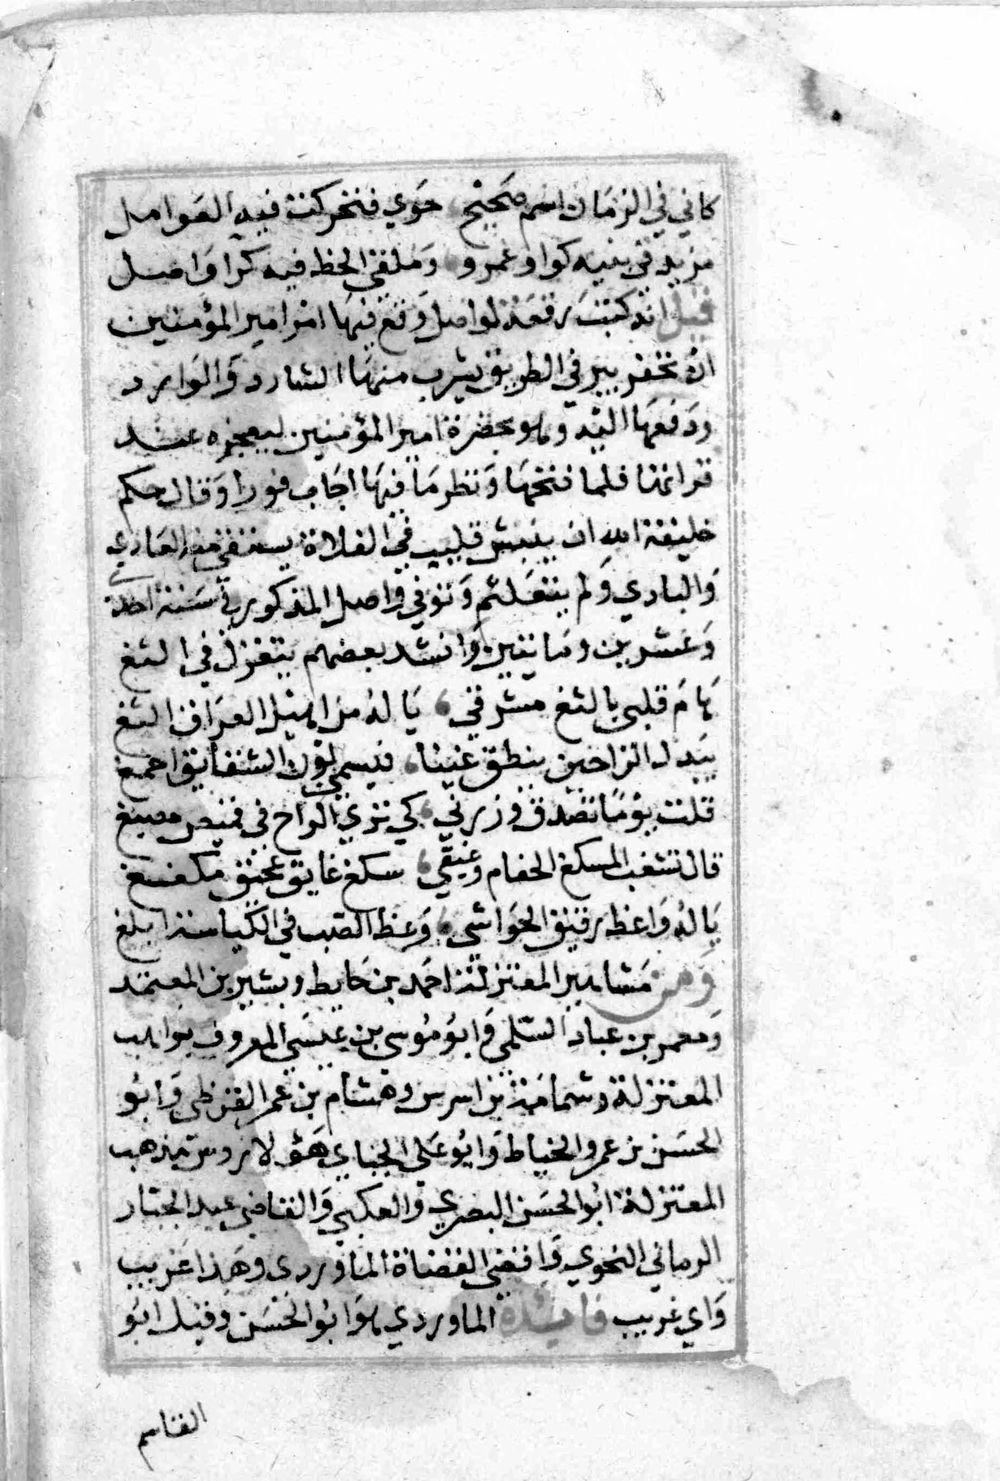 كاني في الزمان اسم صحيح حوي فنخركت فيه العوامل
مزيد في بنيه كواو عمرو وملقي الحظ فيه كرا واصل
قيل انه كتبت رقعة لواصل وقع فيها امر امير المؤمنين
ان تحفر بير في الطريق يشرب منها الشارد والوارد
ودفعها اليه وهو بحضرة امير المؤمنين ليعجزه عند
قرائتها فلما فتحها ونظر ما فيها اجاب فورا وقال حكم
خليفة الله ان ينبش قليب في الفلاة يستقي منه الغادي
والبادي ولم يتلعثم وتوفي واصل المذكور في سنة احدي
وعشرين ومايتين وانشد بعضهم يتغزل في الثغ
هام قلبي بالثغ مشرقي يا له من اميل العراف الثغ
يبدل الراحين ينطق غينا فيسمي لون الشقايق احمغ
قلت يوما تصدق وزرني كي تري الواح في قميص مصبغ
قال تشغب المسكغ الحغام وغيقي سكغ غايق محنق مكغسغ
يا له واعظ رقيق الحواشي وعظ الصب في الكياسة ابلغ
ومن مشاهير المعتزلة احمد بن حايط وبشير بن المعتمد
ومعمر بن عباد السلمي وابو موسي بن عيسي المعروف براهب
المعتزلة وثمامة بن اسرس وهشام بن عمر القرظي وابو
الحسن بن عمرو الخياط وابو علي الجباي هؤلا روس مذهب
المعتزلة ابو الحسن البصري والعكبي والقاضي عبد الجبار
الرماني النحوي واقضي القضاة الماوردي وهذا غريب
واي غريب فايدة الماوردي هو ابو الحسن وقيل ابو
القاسم